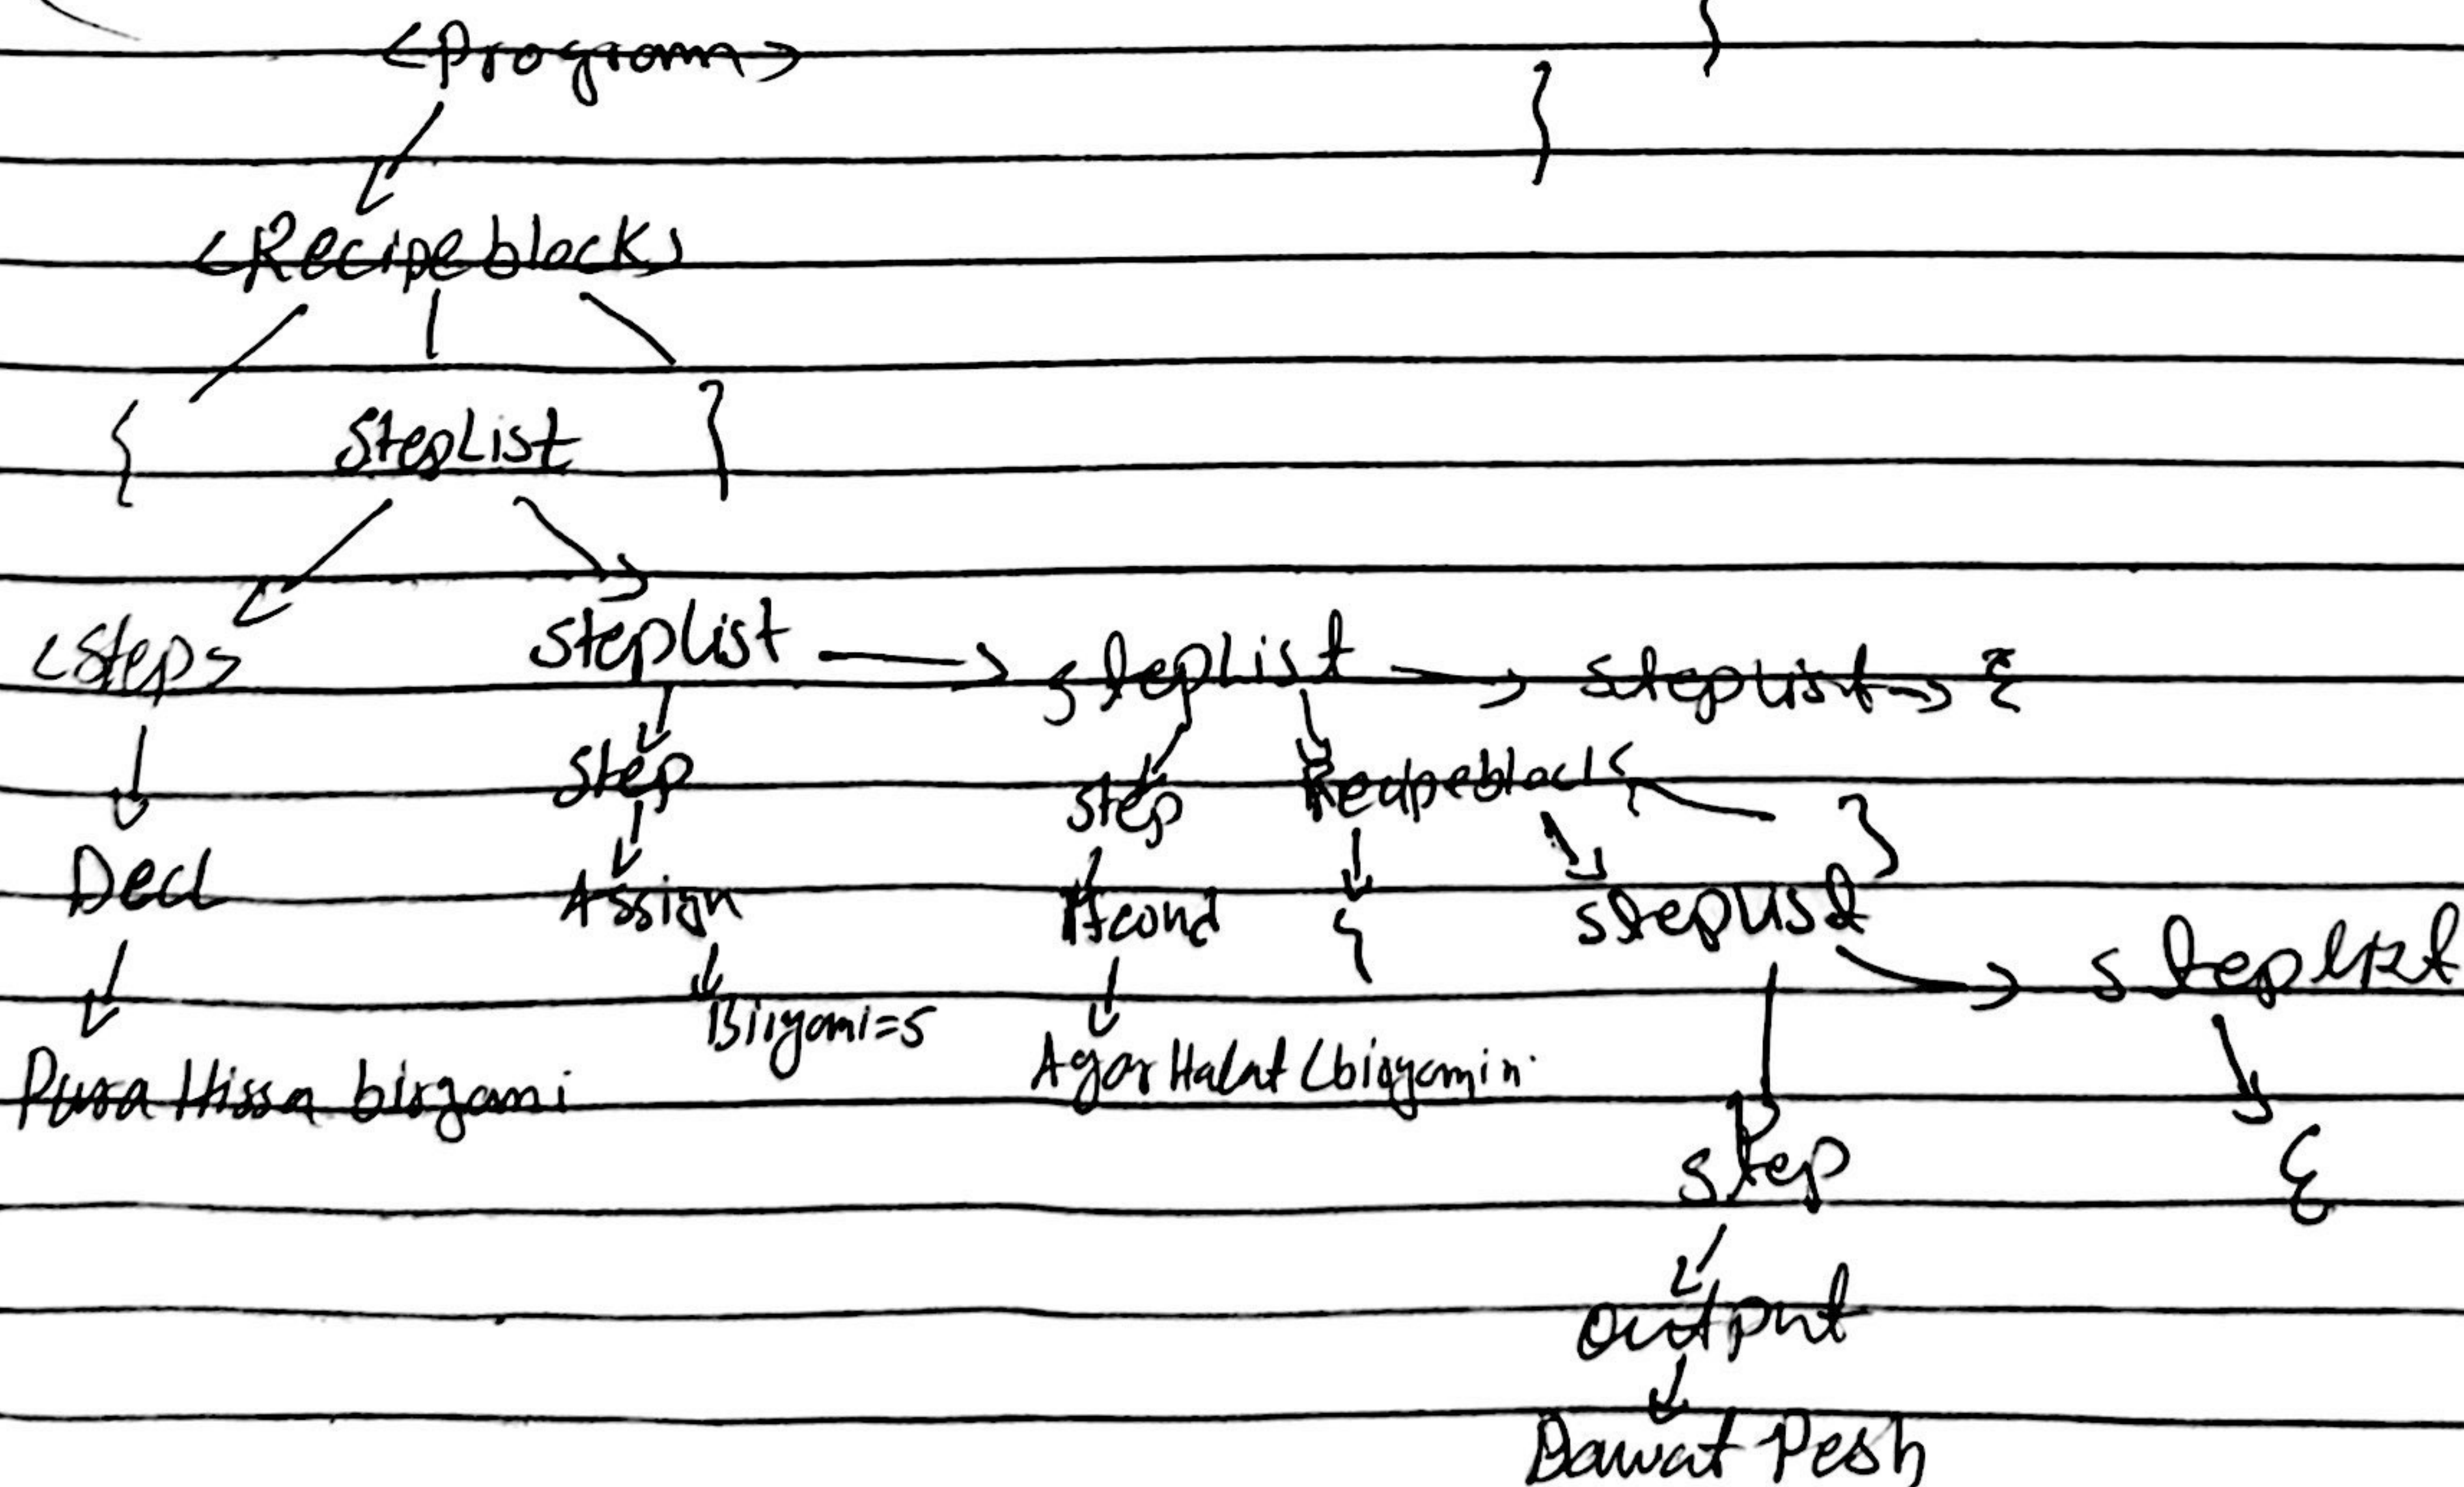 <Program> }
}
<Recipeblock>
{ StepList }
<Step> StepList → StepList → StepList → ε
Step Step Recipeblock }
Decl Assign Ifcond { StepList StepList
Pura Hissa biryani Biryani=5 Agar Halat (biryani
Step ε
Output
Dawat Pesh